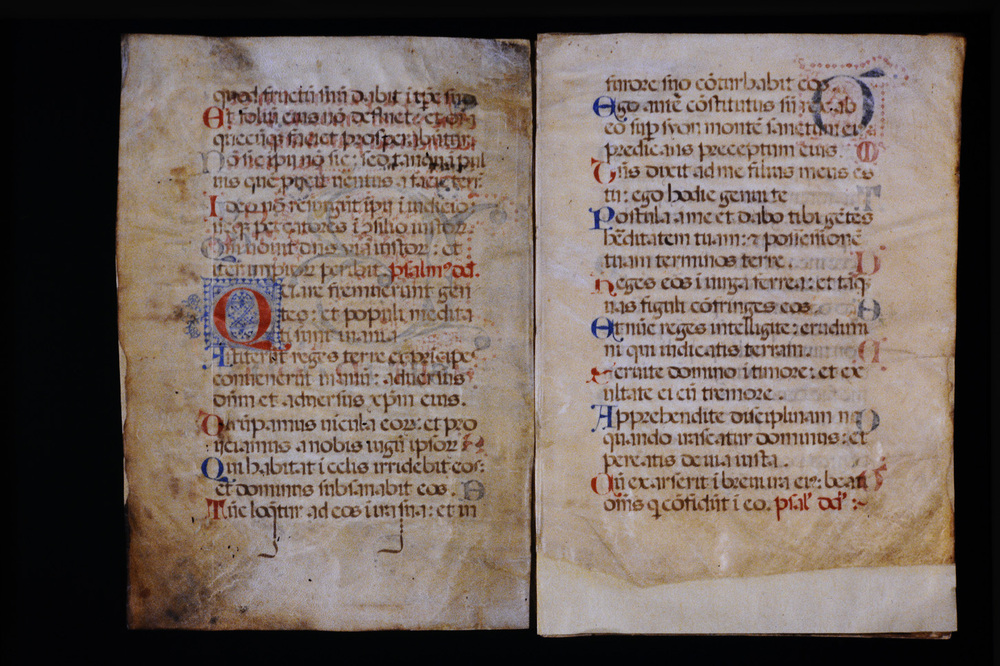 quod fructū suū dabit ī tp̄e suo
Et foliū eius nō defluet: et oīa
quecūq; faciet prosperabūtur.
Nō sic īpij nō sic: sed tamquā pul
uis quē proicit uentus a facie terr̄
Ideo nō resurgūt īpij ī iudicio:
neq; peccatores ī cōsilio iustoꝝ.
Qm̄ nouit dn̄s uiā iustoꝝ: et
iter impioꝝ peribit. psalm' dd.
Quare fremuerunt gen
tes: et populi medita
ti sunt inania
Astiterūt reges terre et prīcipes
conuenerūt in unū: aduersus
dn̄m et aduersus xp̄m eius.
Dirūpamus uīcula eoꝝ: et pro
iiciamus a nobis iugū ipsoꝝ
Qui habitat ī celis irridebit eos:
et dominus subsanabit eos.
Tūc loq̄tur ad eos ī ira sua: et in
furore suo cōturbabit eos
Ego autē cōstitutus sū rex ab
eo sup syon montē sanctum ei'
predicans preceptum eius.
Dn̄s dixit ad me filius meus es
tu: ego hodie genui te
Postula a me et dabo tibi gētes
hēditatem tuam: ⁊ possessionē
tuam terminos terre
Reges eos ī uirga ferrea: et tāq̄
uas figuli cōfringes eos.
Et nūc reges intelligite: erudim
ni qui iudicatis terram
Seruite domino ī timore: et ex
ultate ei cū tremore
Apprehendite disciplinam ne
quando irascatur dominus: et
pereatis de uia iusta
Cū exarserit ī breui ira ei': beati
om̄s q̄ cōfidūt ī eo. psal' dd'